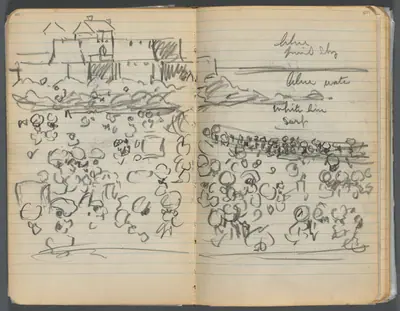 blue
sky
blue water
white line
surf